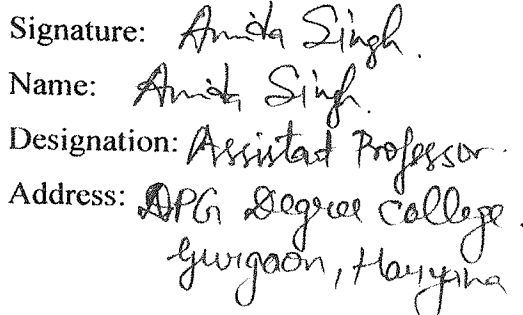 Signature: Anita Singh.
Name: Anita Singh.
Designation: Assistant Professor.
Address: DPG Degree College.
Gurgaon, Haryana